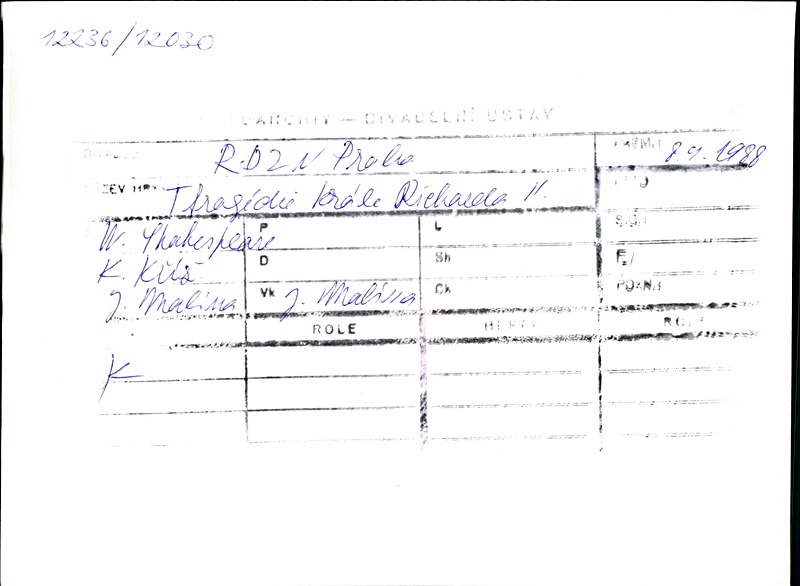 12236/12030
DIVADELNÍ ÚSTAV
RDZN Praha 8.9.1988
NÁZEV HRY Tragédie krále Richarda II.
W. Shakespeare P L
K. Kříž D Sh
J. Malina Vk J. Malina Ck POZN.
ROLE HERCI ROLE
K